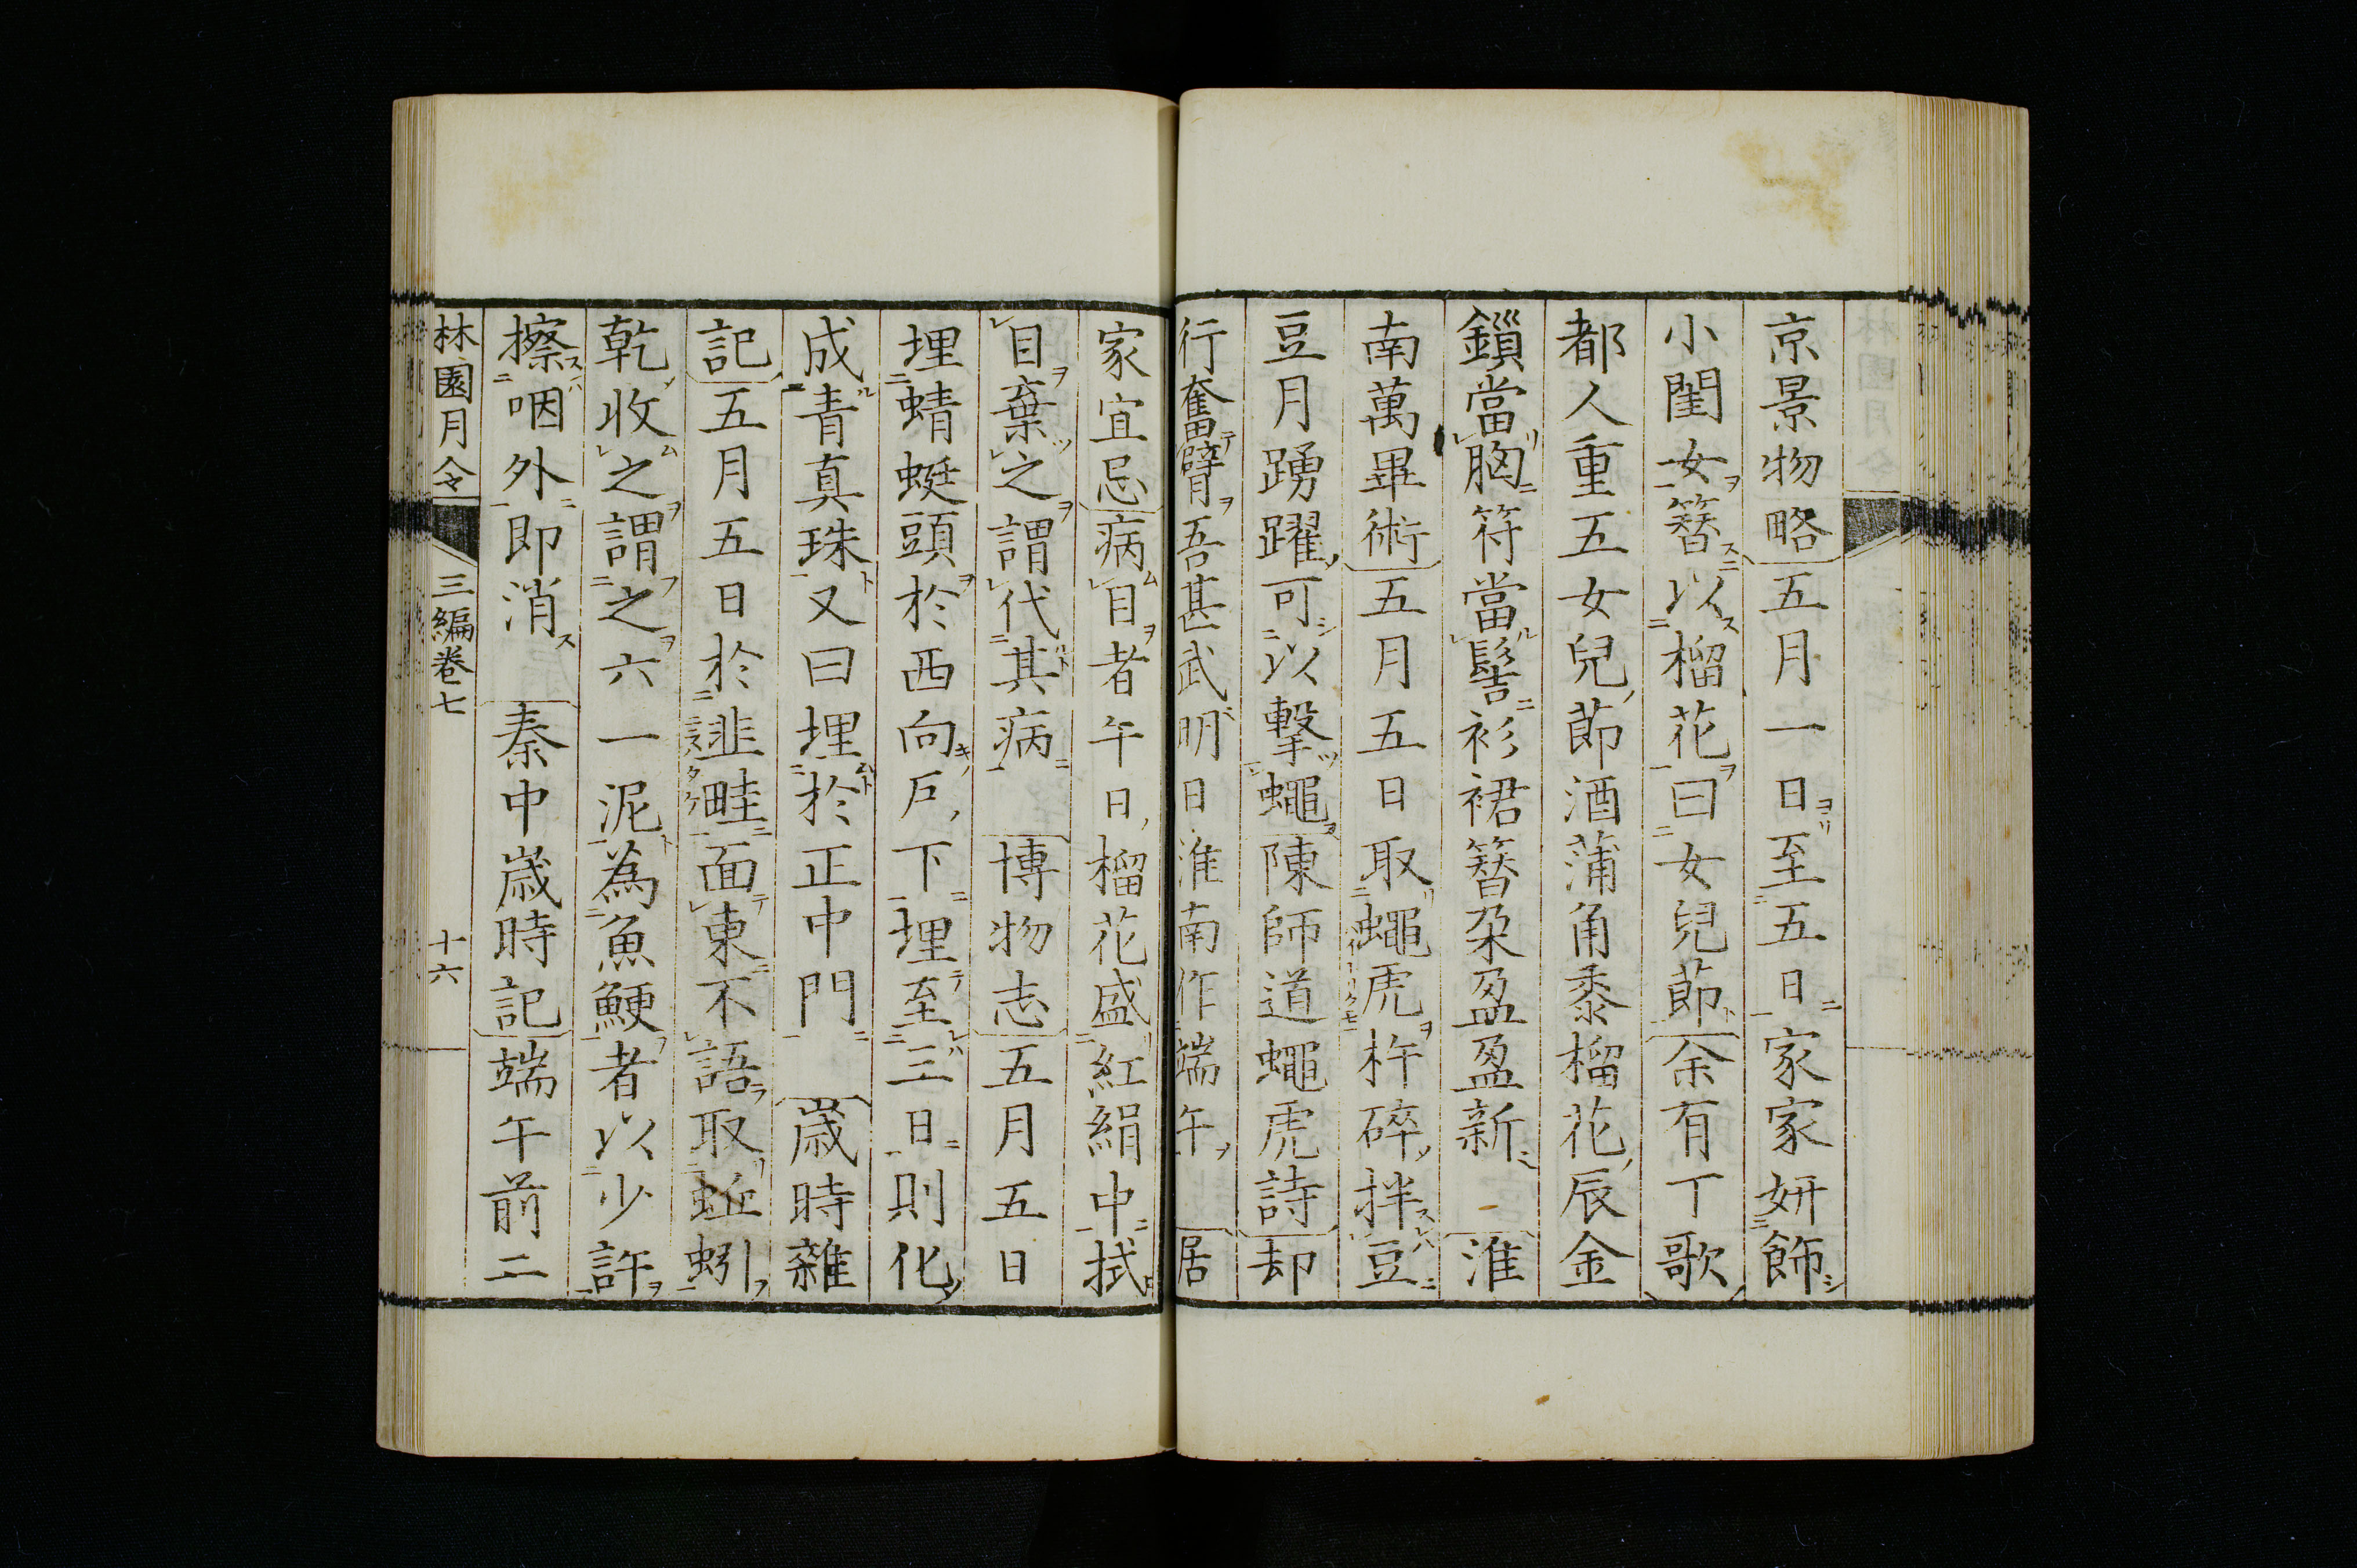 京景物略五月一日至五日家家妍飾
小閨女簪以榴花曰女兒節余有丁歌
都人重五女兒節酒蒲角黍榴花辰金
鎻當胸符當髻衫裙簪朶盈盈新 淮
南萬畢術五月五日取蠅虎杵碎拌豆
豆月踴躍可以擊蠅陳師道蠅虎詩却
行奮臂吾甚武明日淮南作端午居
家宜忌病目者午日榴花盛紅絹中拭
目棄之謂代其病 博物志五月五日
埋蜻蜓頭於西向戶下埋至三日則化
成青真珠又曰埋於正中門 歲時雜
記五月五日於韭畦面東不語取蚯蚓
乾收之謂之六一泥為魚鯁者以少許
擦咽外即消 秦中歲時記端午前二
林園月令 三編卷七 十六